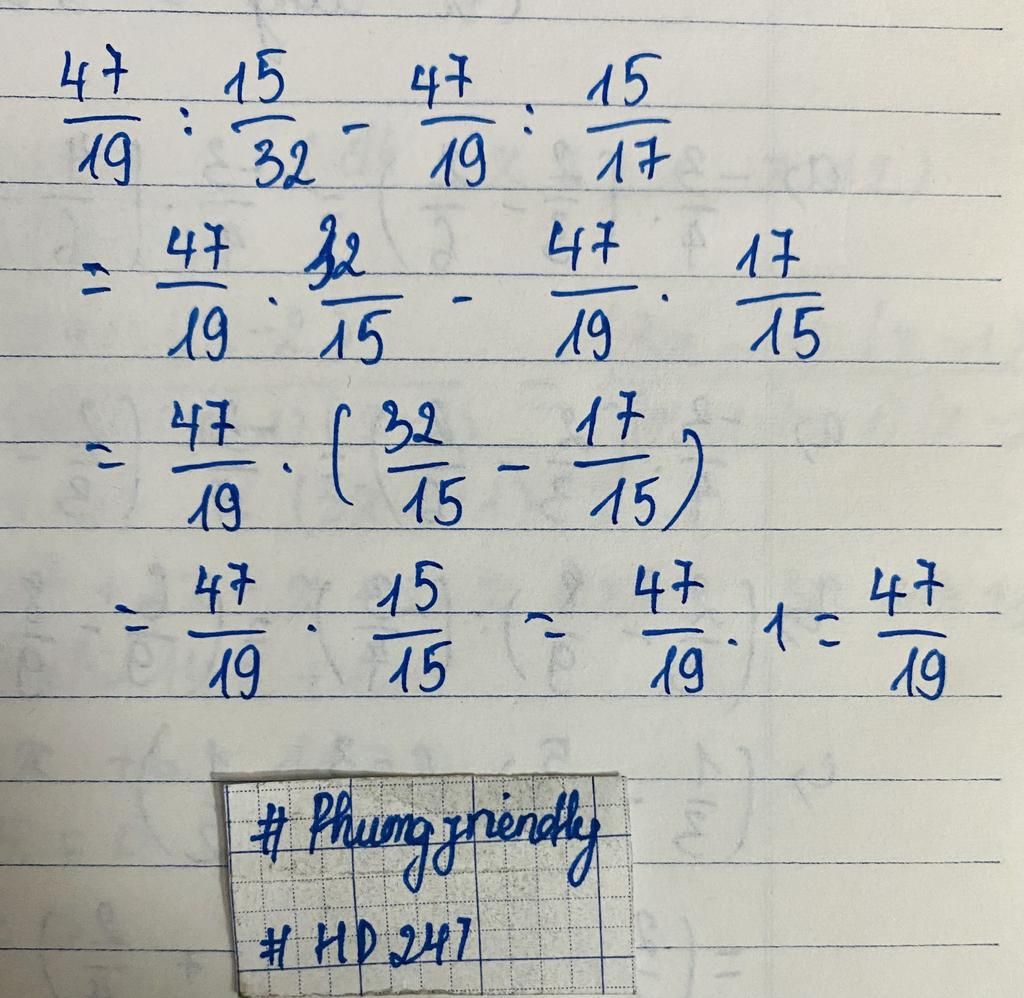 47/19 : 15/32 - 47/19 : 15/17
= 47/19 . 32/15 - 47/19 . 17/15
= 47/19 . (32/15 - 17/15)
= 47/19 . 15/15 = 47/19 . 1 = 47/19
# Phungfriendly
# HD 247